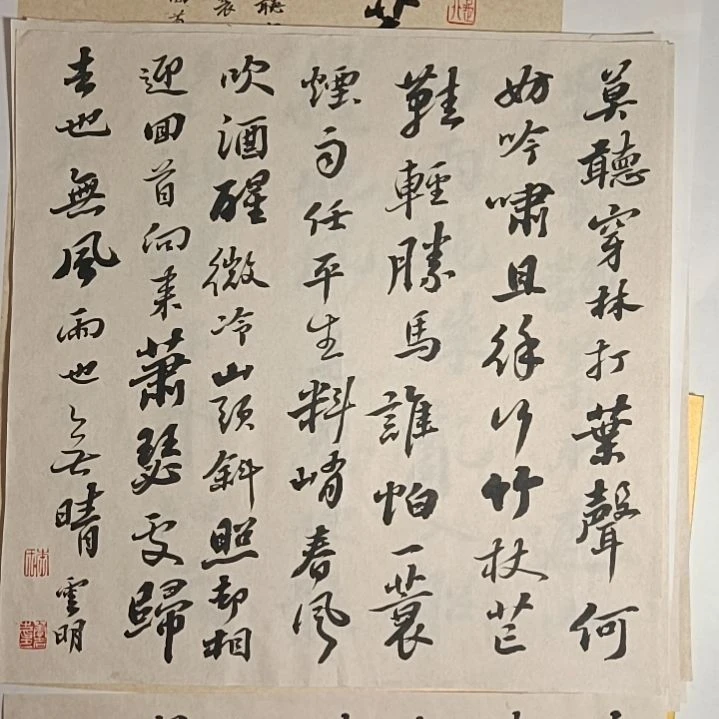 莫聽穿林打葉聲何
妨吟嘯且徐行竹杖芒
鞋輕勝馬誰怕一蓑
煙雨任平生料峭春風
吹酒醒微冷山頭斜照却相
迎回首向來蕭瑟處歸
去也無風雨也無晴
雲明